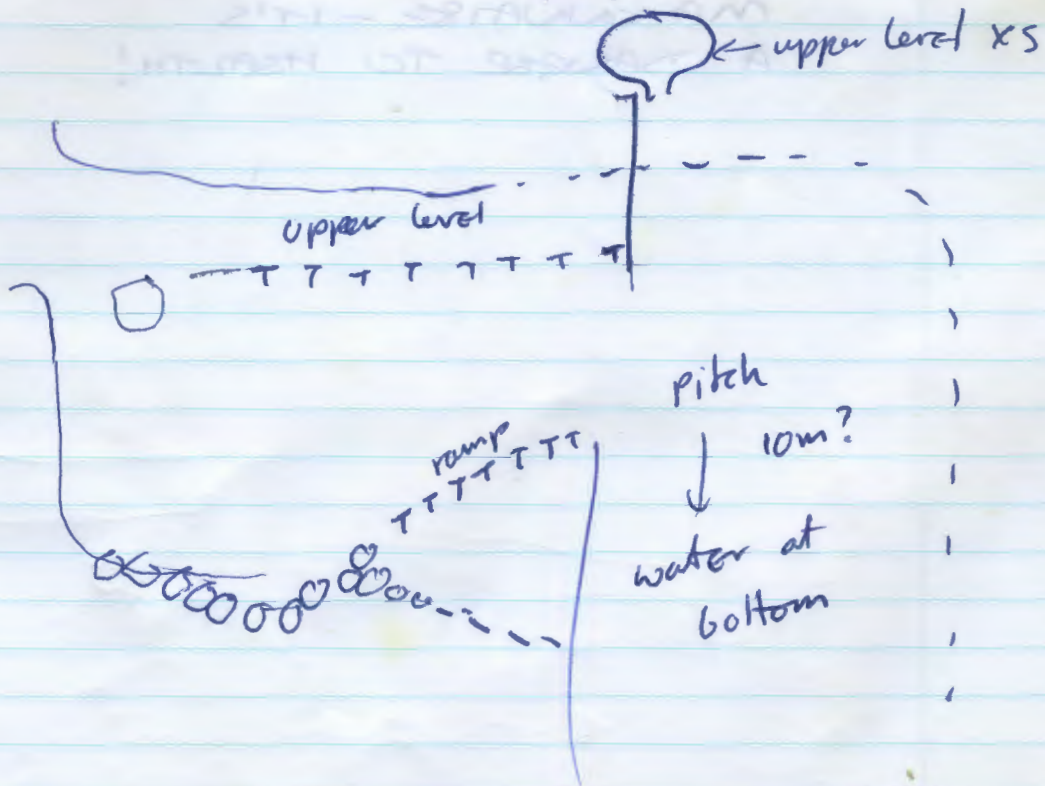 upper level xs
upper level
ramp
pitch
10m?
water at
bottom